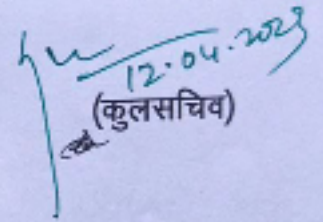 12.04.2023
(कुलसचिव)